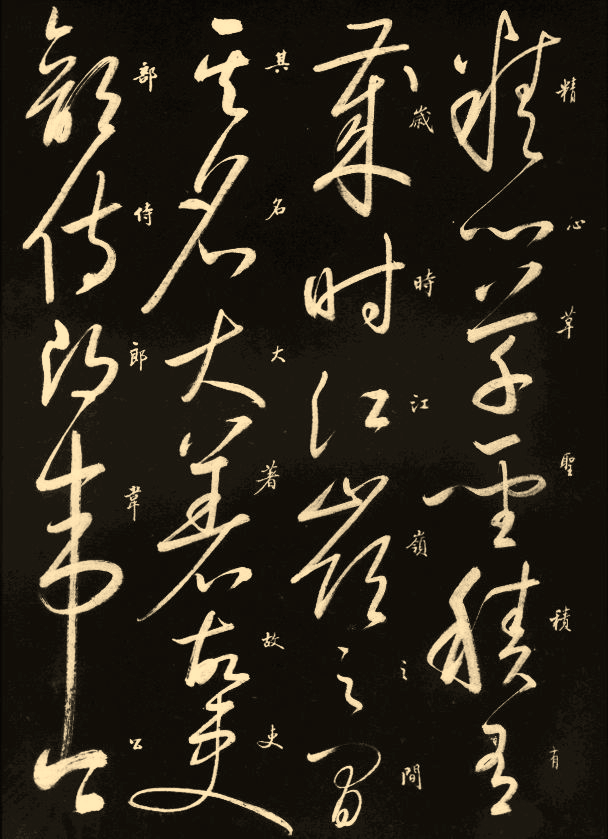 精心草聖積有
歲時江嶺之間
其名大著故吏
部侍郎韋公